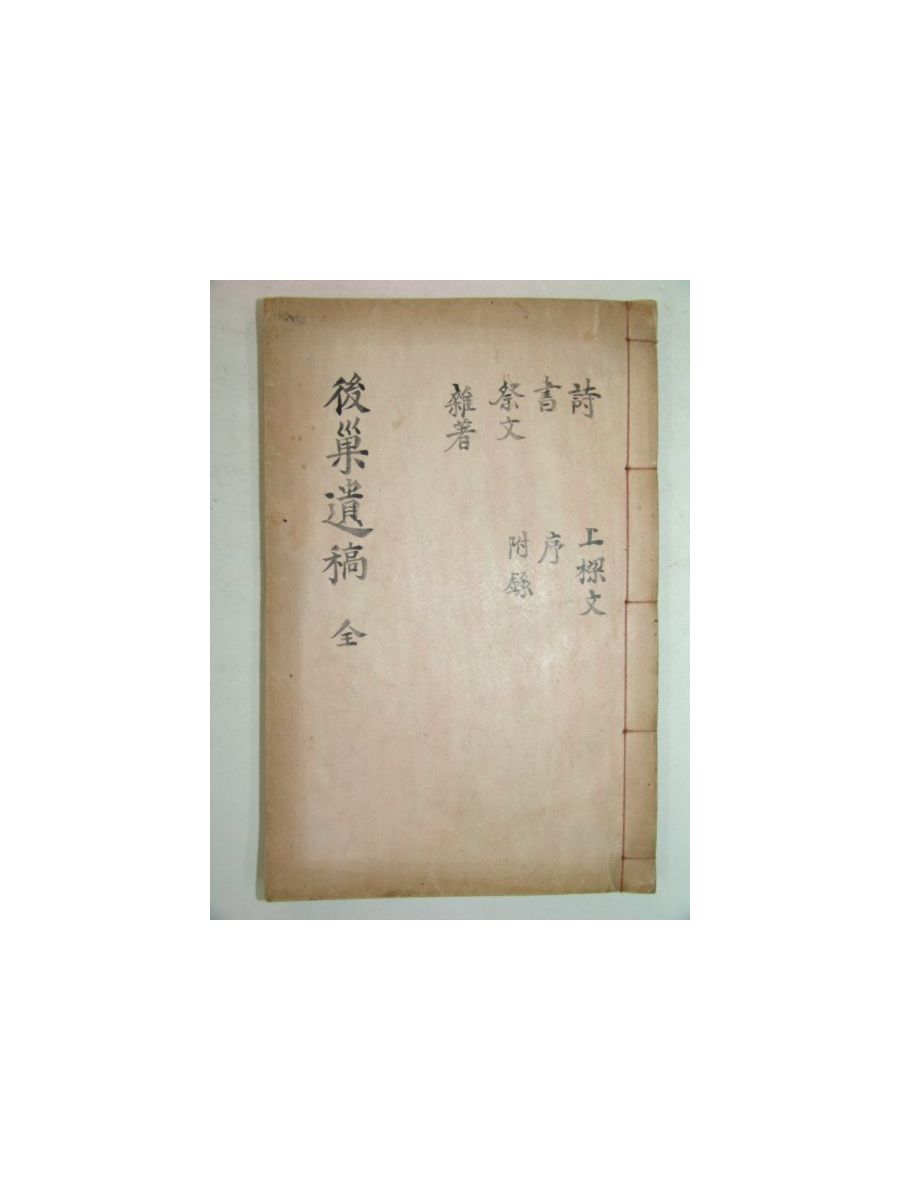 詩
書
祭文
雜著
上樑文
序
附錄
後巢遺稿 全